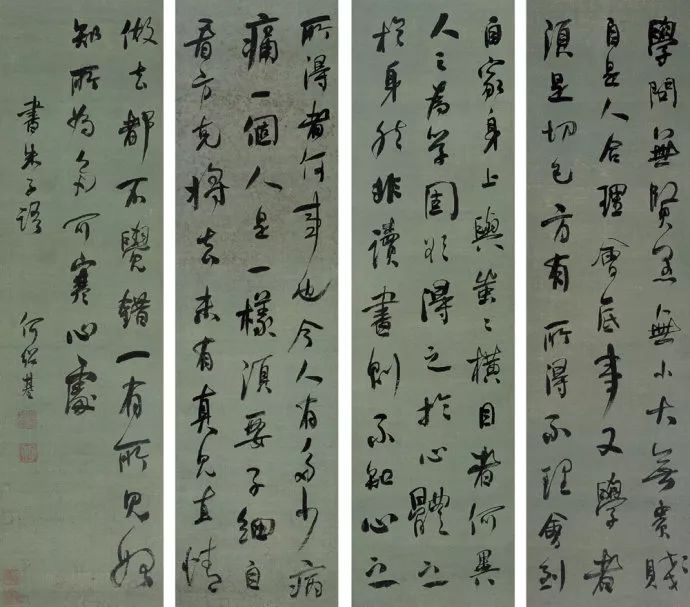 學問無賢愚無小大無貴賤
自是人合理會底事又學者
須是切己方有所得不理會到
自家身上與蚩〻橫目者何異
人之為學固欲得之於心體之
於身然非讀書則不知心之
所得者何事也今人有多少病
痛一個人是一樣須要子細自
看方克將去未有真見直情
做去都不覺錯一有所見始
知所為多可寒心處
書朱子語
何紹基